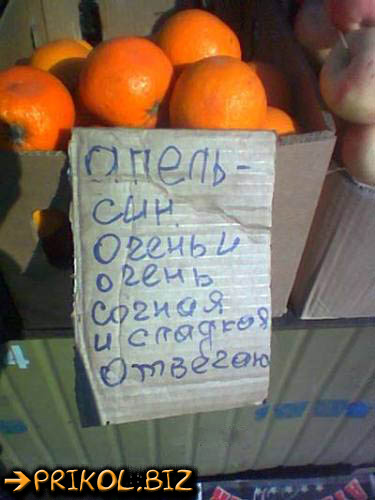 опель-
син.
Очень и
очень
сочная
и сладкая
Отвечаю
PRIKOL.BIZ